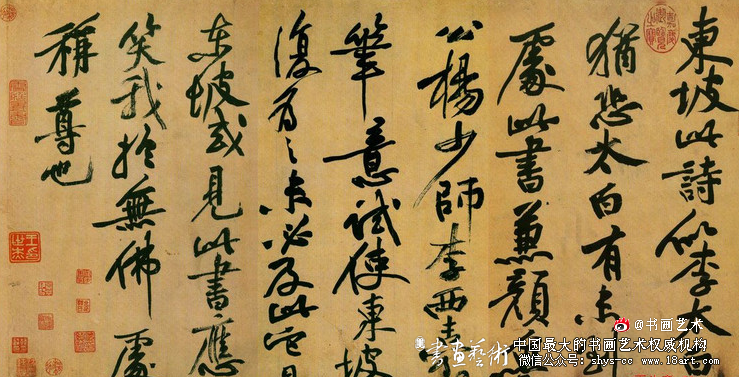 東坡此詩似李太白
猶恐太白有未到
處此書兼顏魯
公楊少師李西臺
筆意試使東坡
復為之未必及此它日
東坡或見此書應
笑我於無佛處
稱尊也
@书画艺术
書畫藝術
中国最大的书画艺术权威机构
微信公众号: shys-cc www.18art.com